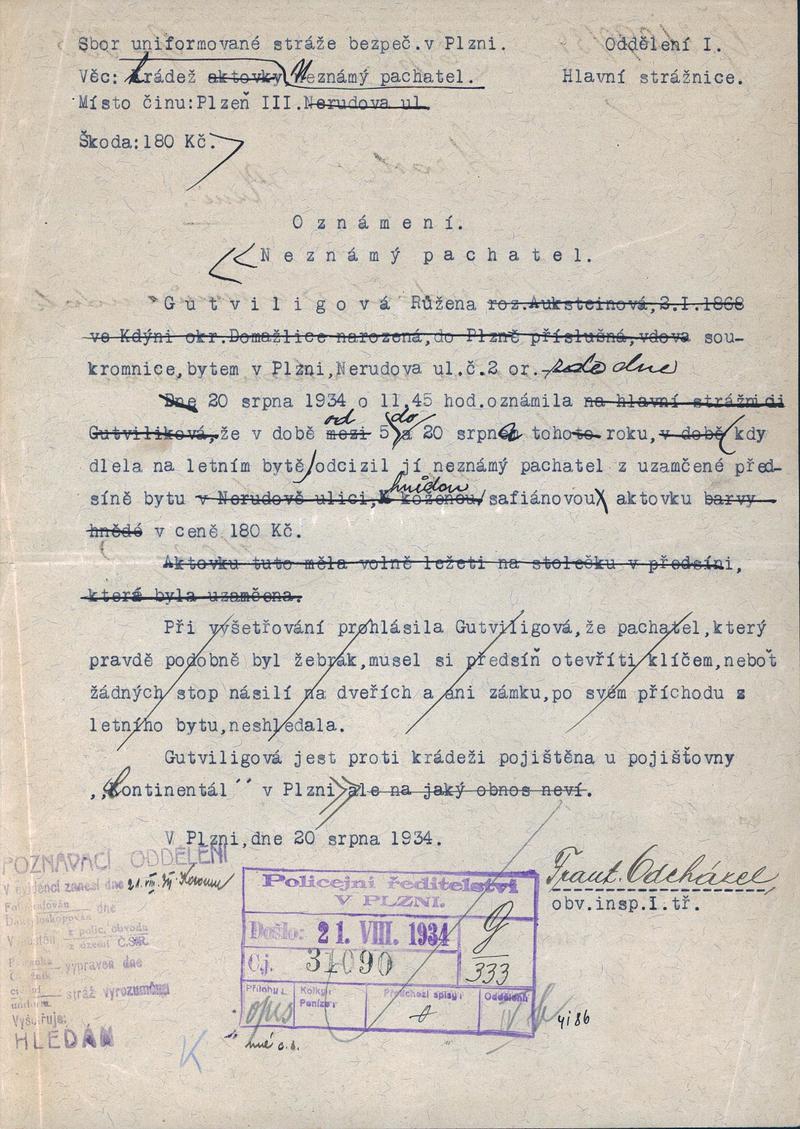 Sbor uniformované stráže bezpeč.v Plzni. Oddělení I.
Věc: krádež aktovky Neznámý pachatel. Hlavní strážnice.
Místo činu:Plzeň III.Nerudova ul.
Škoda:180 Kč.
Oznámení.
Neznámý pachatel.
Gutviligová Růžena roz.Auksteinová,2.I.1868
ve Kdýni okr.Domažlice narozená,do Plzně příslušná,vdova sou-
kromnice,bytem v Plzni,Nerudova ul.č.2 or. zde dne
Dne 20 srpna 1934 o 11,45 hod.oznámila na hlavní strážnici
od do
Gutviliková,že v době mezi 5 a 20 srpna tohoto roku,v době kdy
dlela na letním bytě,odcizil jí neznámý pachatel z uzamčené před-
hnědou
síně bytu v Nerudově ulici, koženou, safiánovou aktovku barvy
hnědé v ceně 180 Kč.
Aktovku tuto měla volně ležeti na stolečku v předsíni,
která byla uzamčena.
Při vyšetřování prohlásila Gutviligová,že pachatel,který
pravdě podobně byl žebrák,musel si předsíň otevříti klíčem,neboť
žádných stop násilí na dveřích a ani zámku,po svém příchodu z
letního bytu,neshledala.
Gutviligová jest proti krádeži pojištěna u pojišťovny
„Kontinentál´´ v Plzni ale na jaký obnos neví.
V Plzni,dne 20 srpna 1934.
Frant. Odcházel,
obv.insp.I.tř.
POZNÁVACÍ ODDĚLENÍ
V evidenci zanesl dne 21.VIII.
dne
Daktyloskopován
z polic. obvodu
z území Č.S.R.
vypraven dne
stráž vyrozuměna
HLEDÁM
Policejní ředitelství
V PLZNI.
Došlo: 21. VIII. 1934
Čj. 31090
9
333
Příloh: Kolky: Peníze: Předchozí spisy: Oddělení:
opis
4i86
K